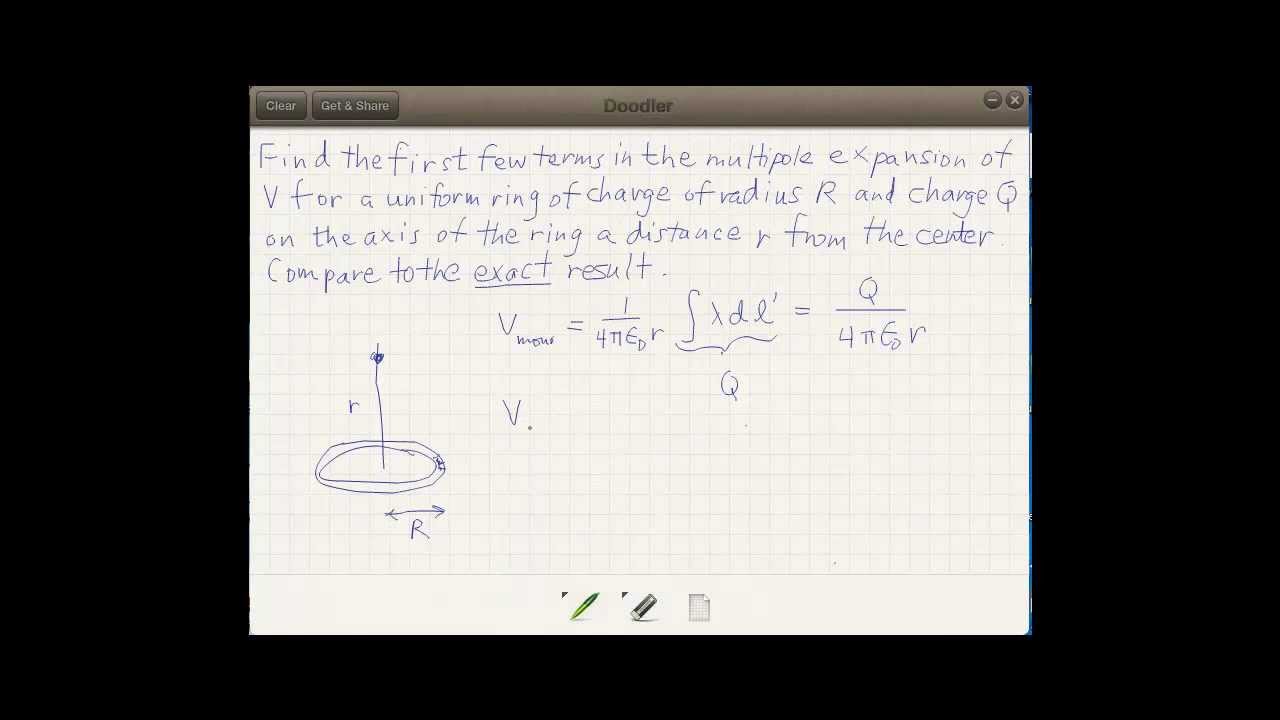 Clear Get & Share Doodler
Find the first few terms in the multipole expansion of
V for a uniform ring of charge of radius R and charge Q
on the axis of the ring a distance r from the center.
Compare to the exact result.
V_mono = 1/(4πε₀r) ∫λdl' = Q/(4πε₀r)
Q
V
r
R